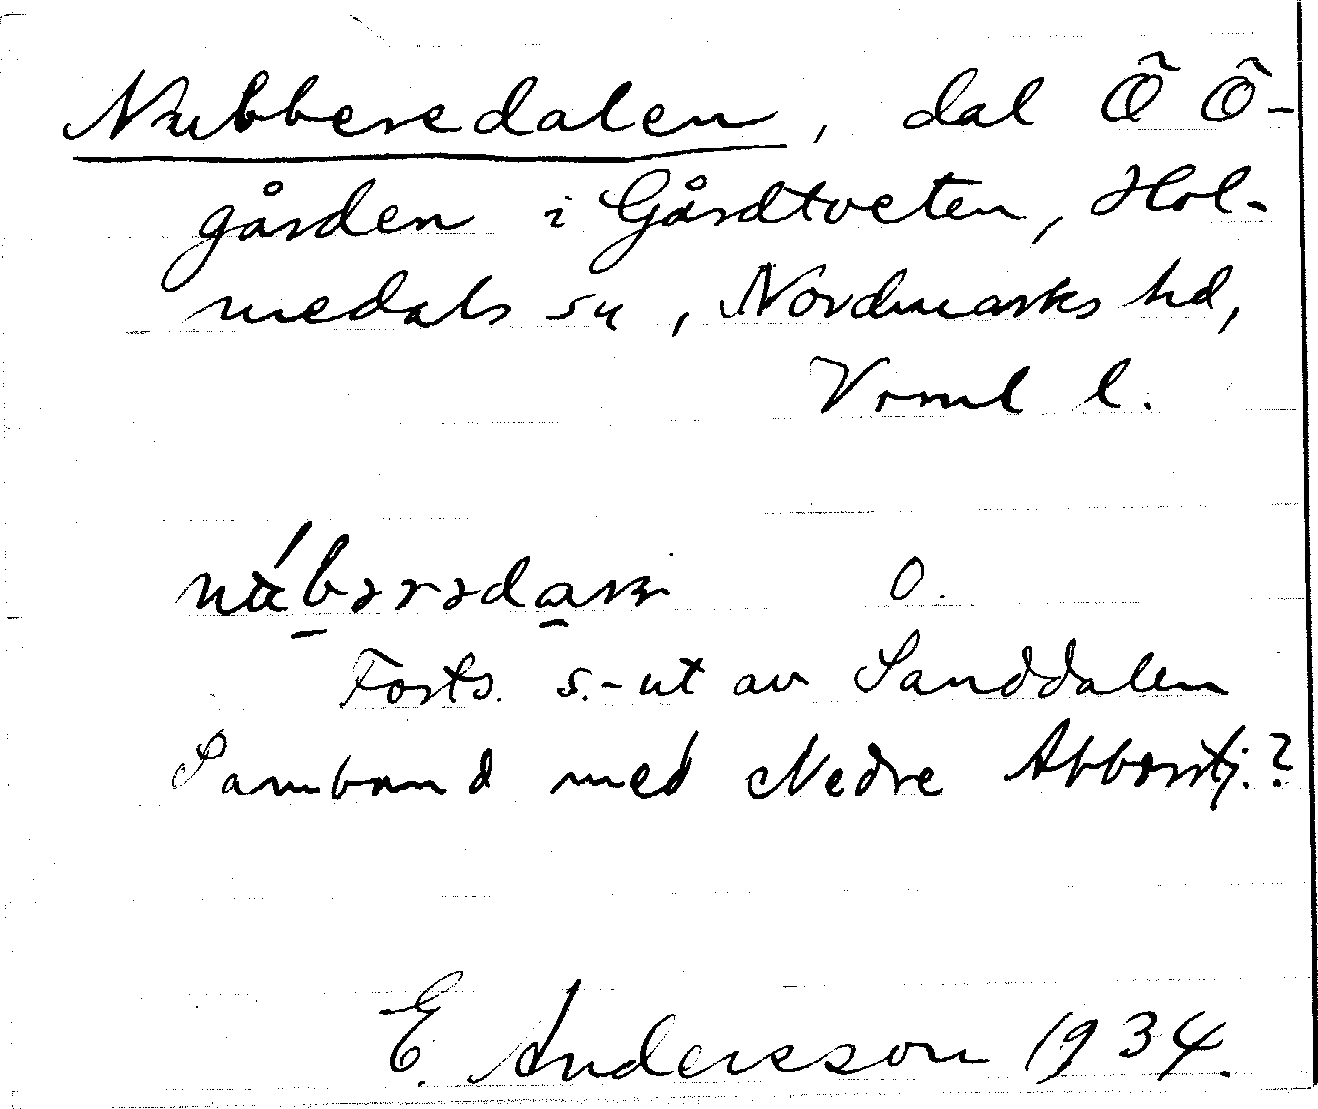 Nubberedalen, dal Ö Ö-
gården i Gårdtveten, Hol-
medals sn, Nordmarks hd,
Vrml l.
O.
Forts. s.-ut av Sanddalen
Samband med Nedre Abborrtj.?
E. Andersson 1934.